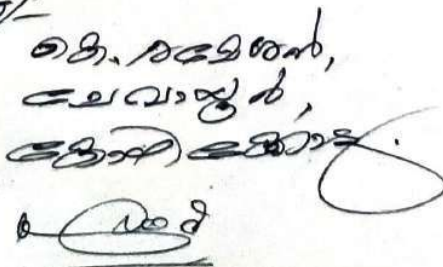 കെ. രമേശൻ,
ചേവായൂർ,
കോഴിക്കോട്.